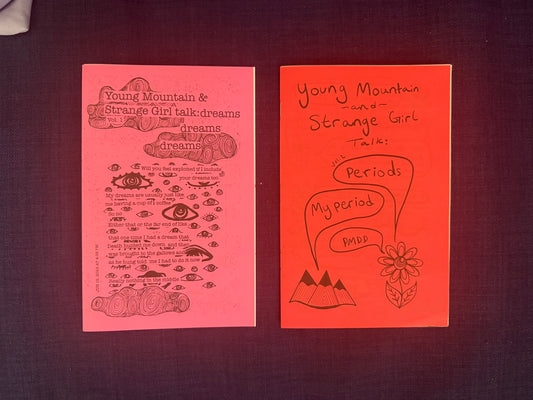 Young Mountain &
Strange Girl talk:dreams
Vol. 1
dreams
dreams
Will you feel exploited if I include
your dreams too
My dreams are usually just like
me having a cup of coffee
So no
Either that or the far end of like
that one time I had a dream that
Death hunted me down and then
was brought to the gallows and
as he hung told me I had to do it now
Young Mountain
-and-
Strange Girl
Talk:
Vol. 2
Periods
My period
PMDD